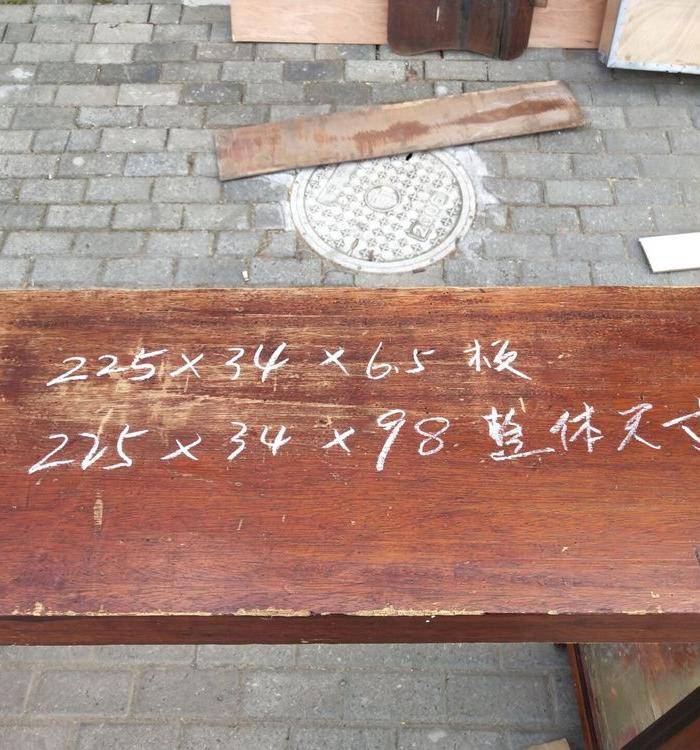 225×34×6.5 板
225×34×98 整体尺寸